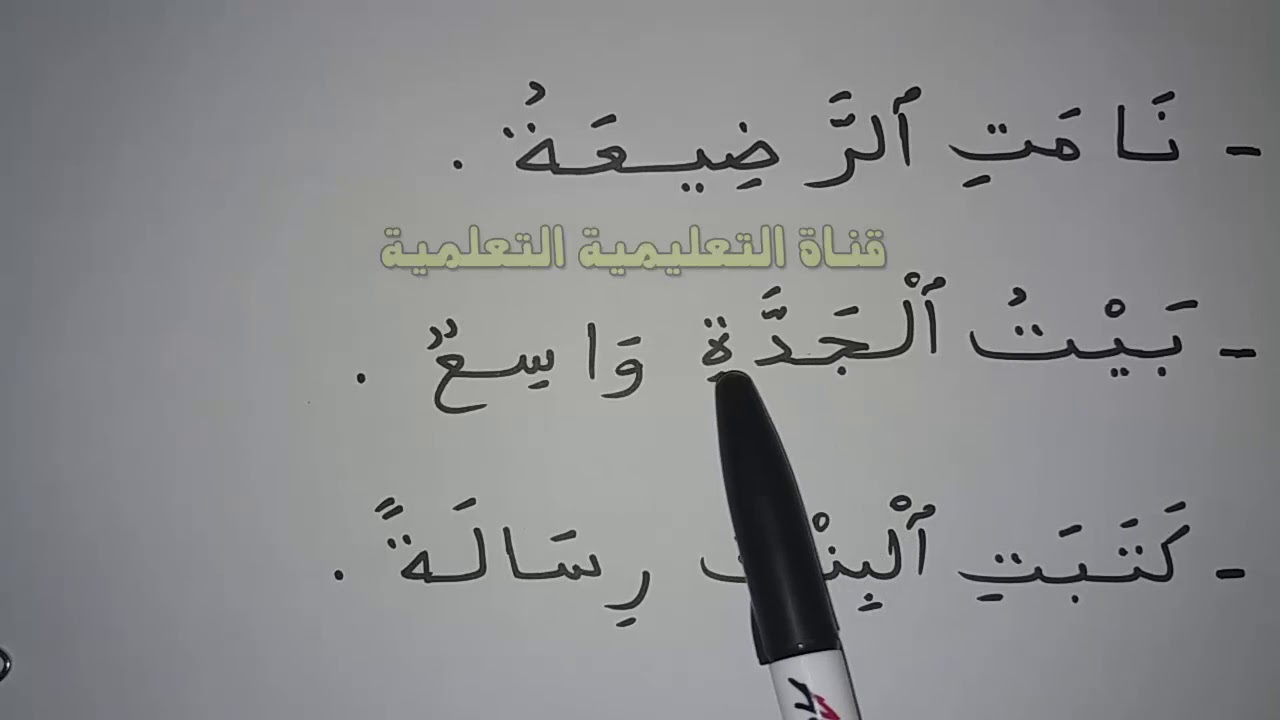 - نَامَتِ ٱلرَّضِيعَةُ .
قناة التعليمية التعلمية
- بَيْتُ ٱلْجَدَّةِ وَاسِعٌ .
- كَتَبَتِ ٱلْبِنْتُ رِسَالَةً .